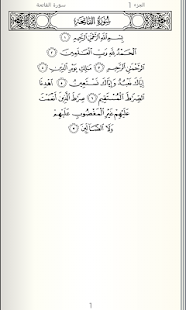 سورة الفاتحة
الجزء 1
سُورَةُ الفَاتِحَةِ
بِسْمِ اللَّهِ الرَّحْمَٰنِ الرَّحِيمِ ١
الْحَمْدُ لِلَّهِ رَبِّ الْعَالَمِينَ ٢
الرَّحْمَٰنِ الرَّحِيمِ ٣ مَالِكِ يَوْمِ الدِّينِ ٤
إِيَّاكَ نَعْبُدُ وَإِيَّاكَ نَسْتَعِينُ ٥ اهْدِنَا
الصِّرَاطَ الْمُسْتَقِيمَ ٦ صِرَاطَ الَّذِينَ أَنْعَمْتَ
عَلَيْهِمْ غَيْرِ الْمَغْضُوبِ عَلَيْهِمْ
وَلَا الضَّالِّينَ ٧
1